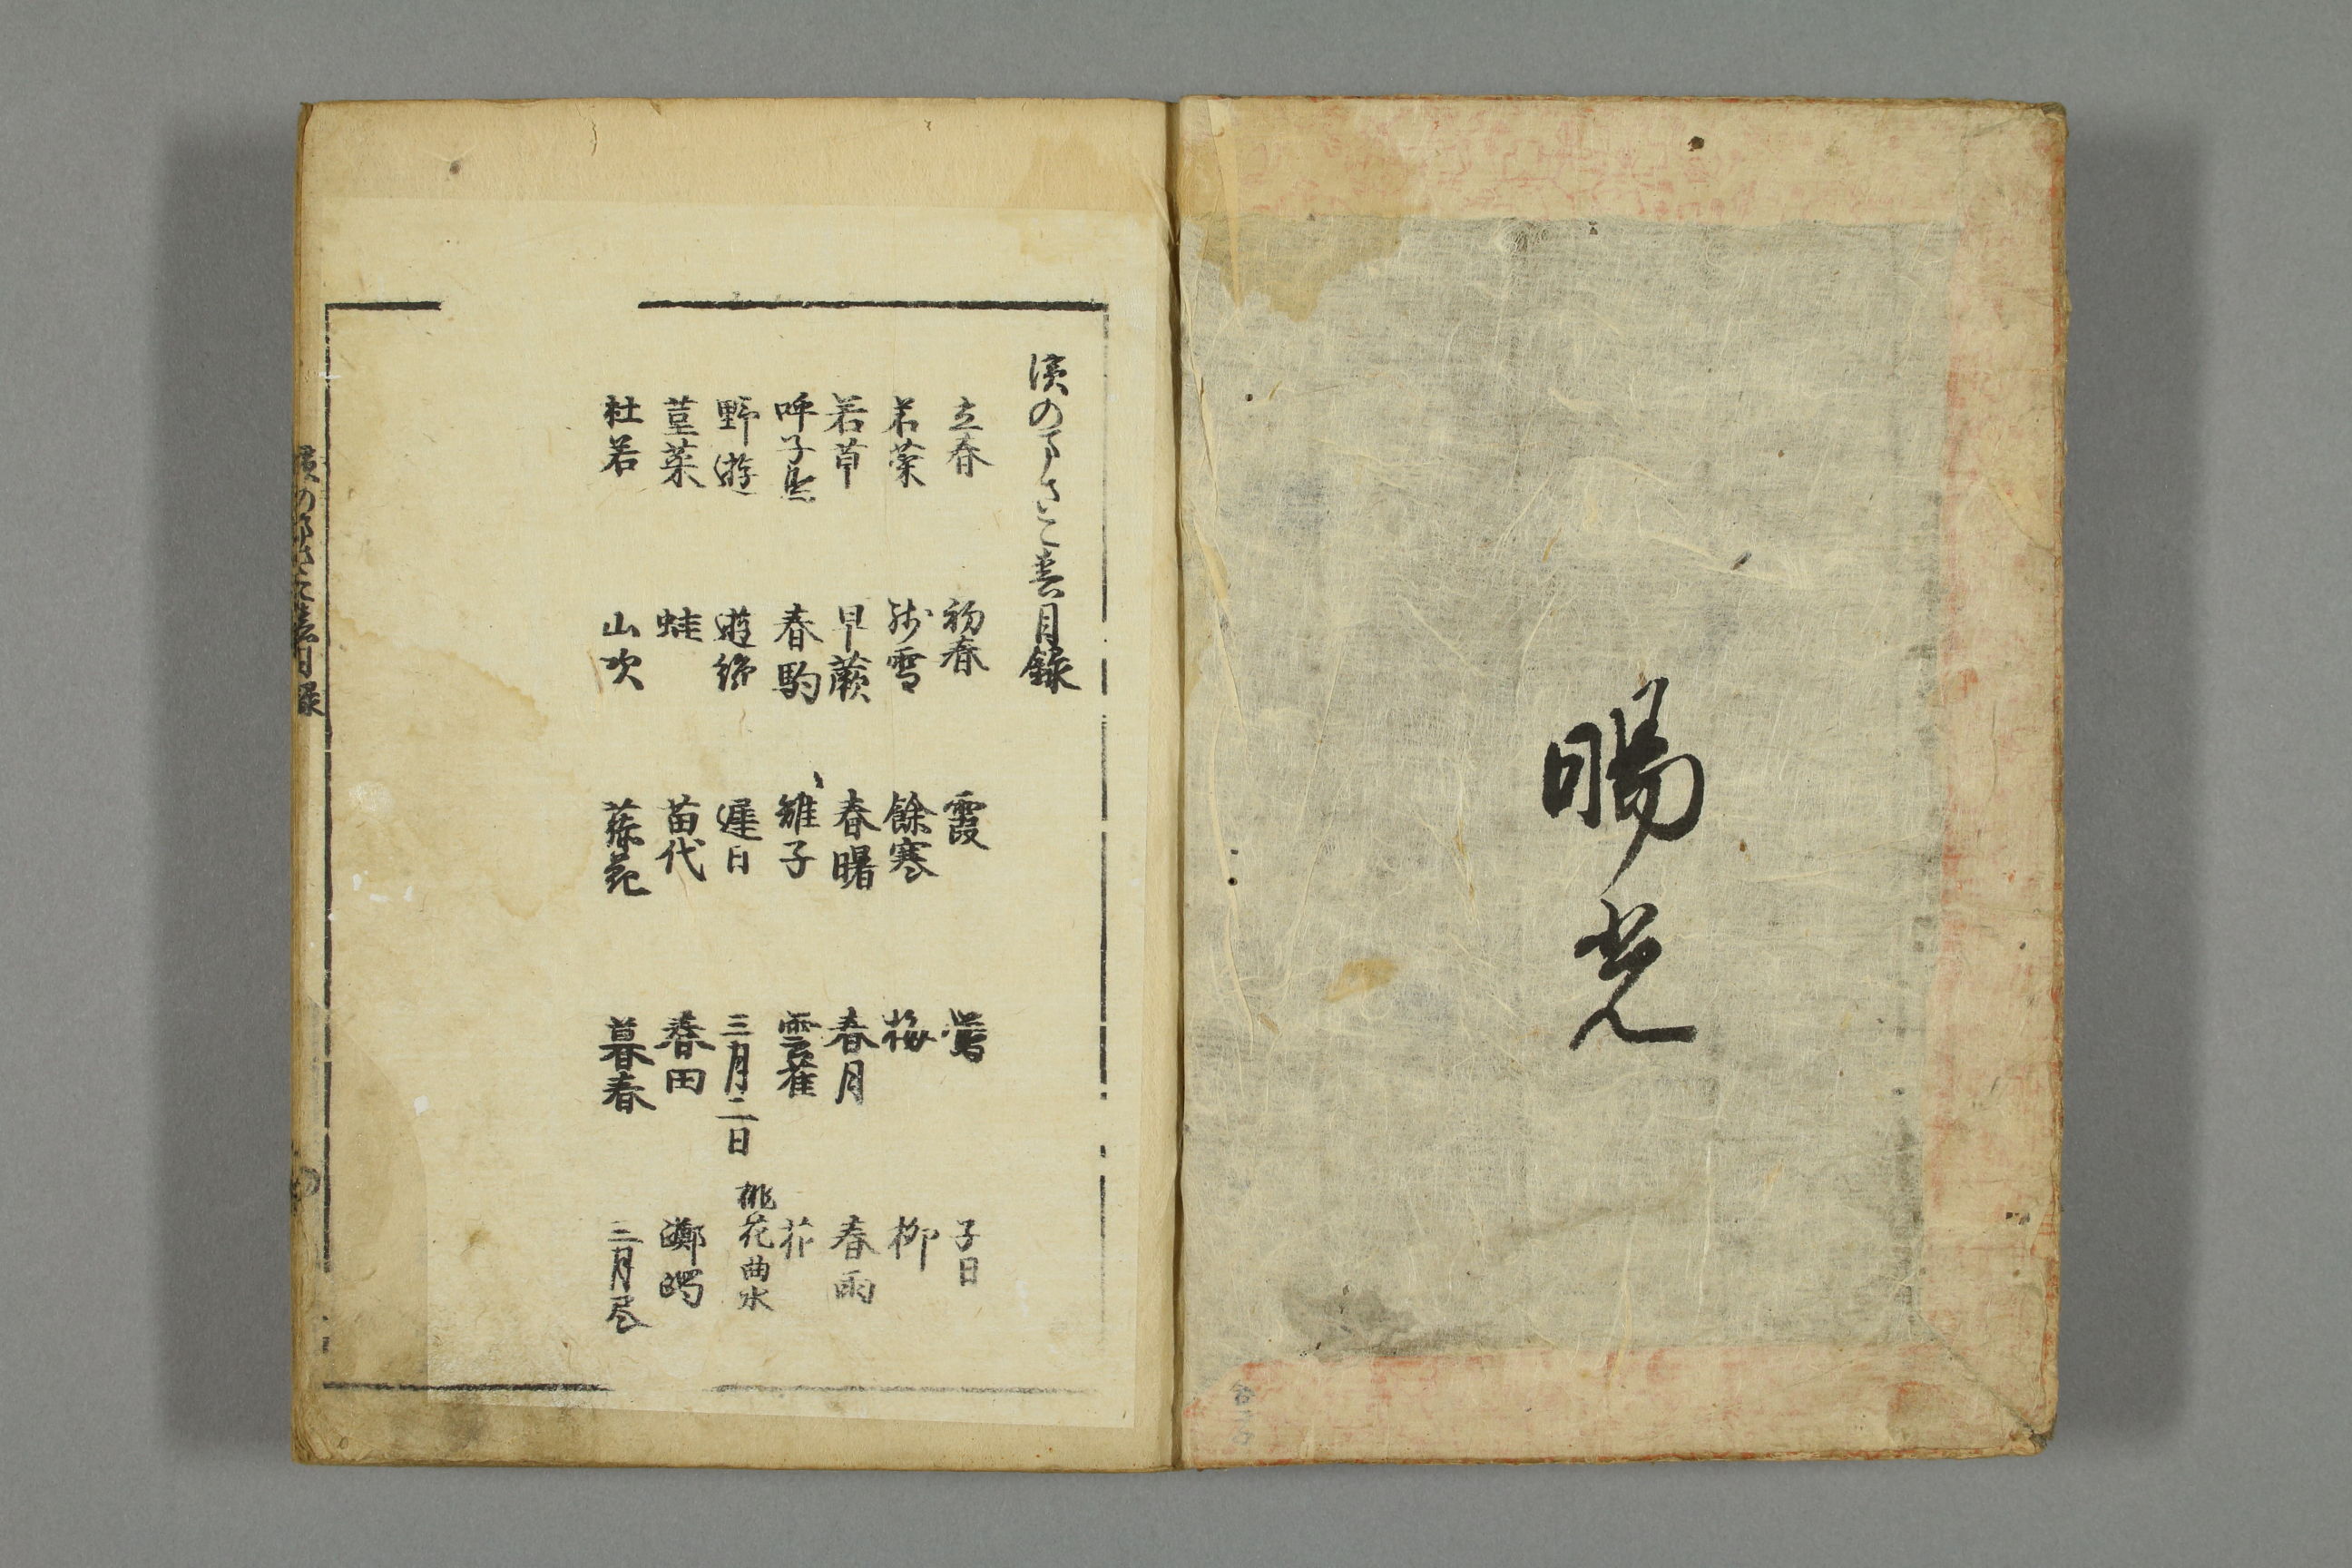 暘光
濱のまさこ春目録
立春 初春 霞 鶯 子日
若菜 残雪 餘寒 梅 柳
若草 早蕨 春曙 春月 春雨
呼子鳥 春駒 雉子 雲雀 花
野遊 遊絲 遅日 三月三日 桃花曲水
菫菜 蛙 苗代 春田 躑躅
杜若 山吹 藤花 暮春 三月尽
濱のまさこ春目録